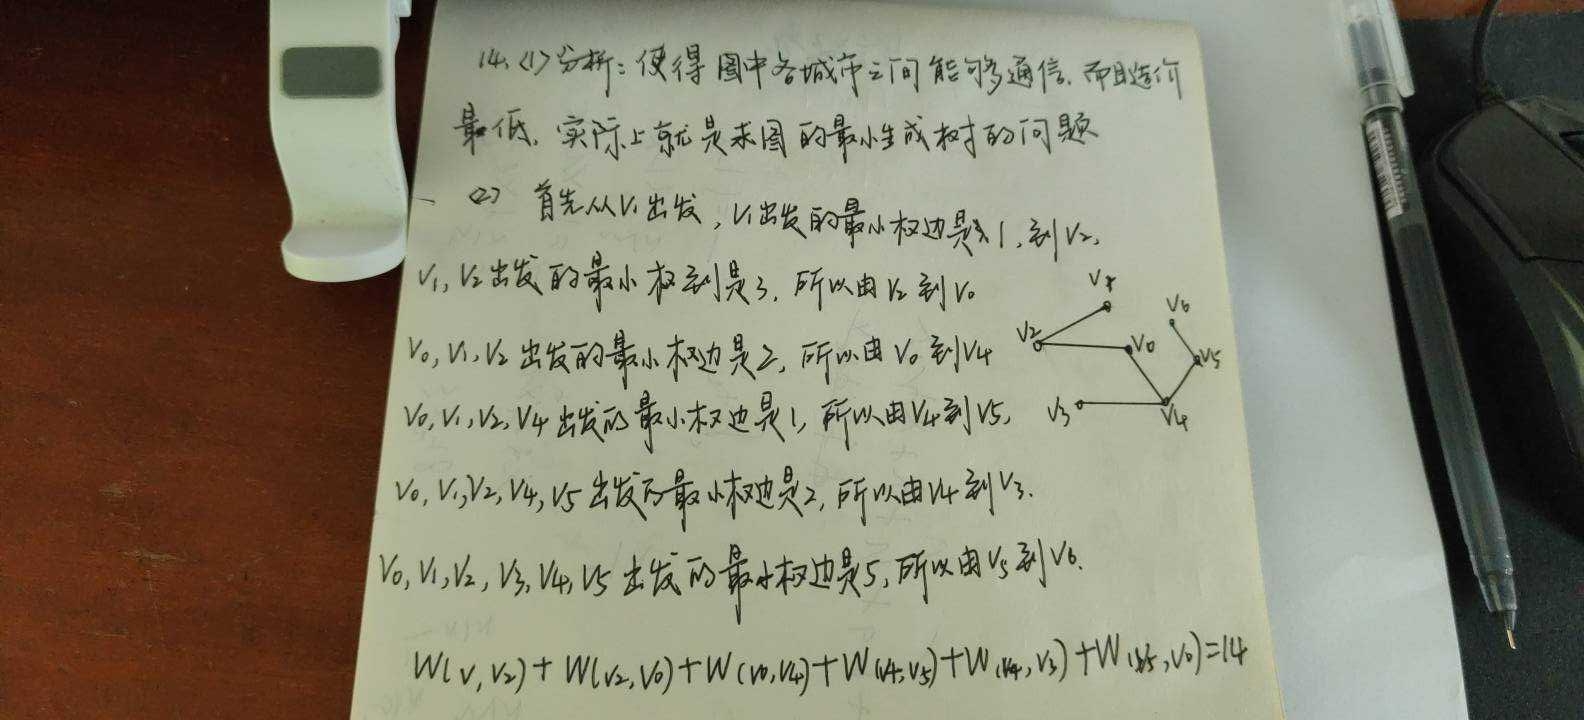 14、(1)分析：使得图中各城市之间能够通信，而且造价
最低，实际上就是求图的最小生成树的问题
(2) 首先从V1出发，V1出发的最小权边是1，到V2，
V1，V2出发的最小权到是3，所以由V2到V0
V0，V1，V2出发的最小权边是2，所以由V0到V4
V0，V1，V2，V4出发的最小权边是1，所以由V4到V5，
V0，V1，V2，V4，V5出发的最小权边是2，所以由V4到V3．
V0，V1，V2，V3，V4，V5出发的最小权边是5，所以由V5到V6．
W(V，V2)＋W(V2，V0)＋W(V0，V4)＋W(V4，V5)＋W(V4，V3)＋W(V5，V6)=14
V6
V2
V0
V5
V3
V4